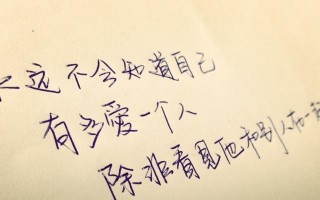 永远不会知道自己
有多爱一个人
除非看见他和别人在一起